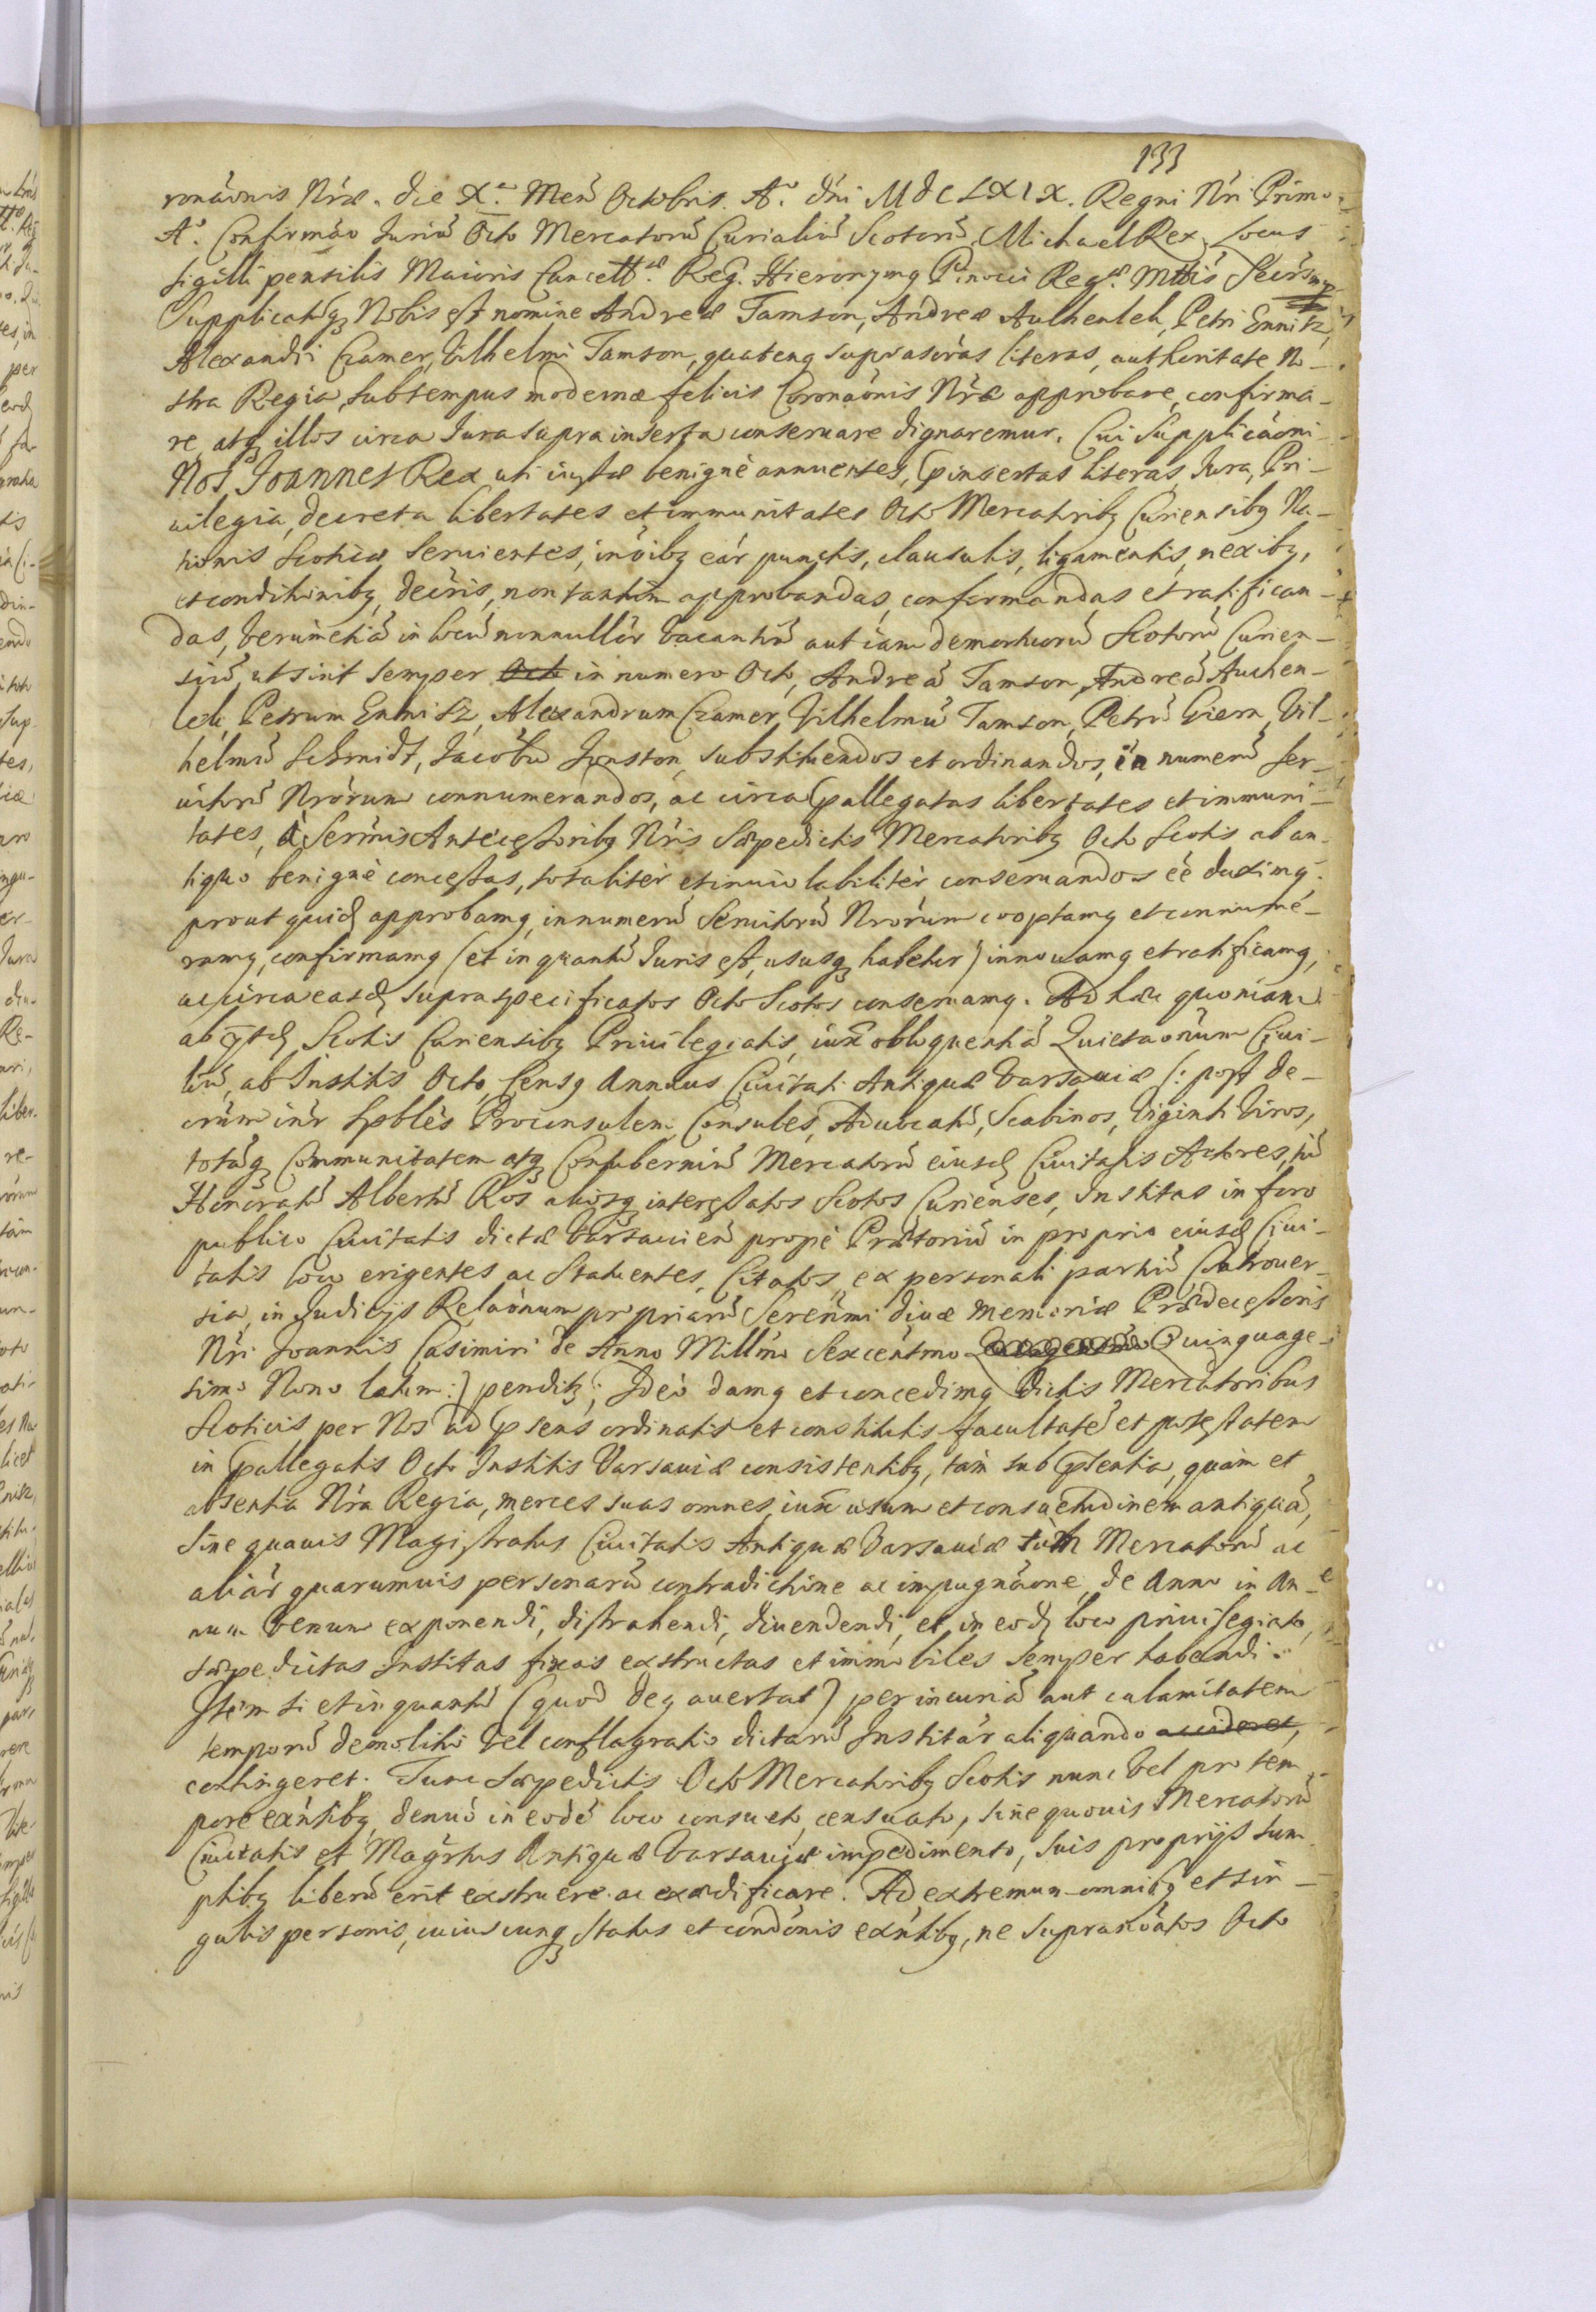 133
ronãonis Nrã. die Xa. Men̄ Octobris. Ao. dni MdcLXIX. Regni Nri Primo
Ao. Confirmão Juriū Octo Mercatorū Curialiū Scotorū. Michael Rex, Locus
sigilli pensilis Maioris Cancellae. Reg. Hieronymg Pinocci Regae. Mttis Secrsmp
Supplicatūq Nobis est nomine Andreæ Tamson, Andreæ Auchenleh, Petri Ennitz,
Alexandri Czamer, Vilhelmi Tamson, quateng suprascrãs literas, authoritate No-
stra Regia, sub tempus modernæ felicis Coronãonis Nræ approbare, confirma-
re, atq illos circa Jura supra inserta conseruare dignaremur. Cui Supplicãoni
Nos Joannes Rex uti iustæ benignè annuentes, pinsertas literas, Jura, Pri-
uilegia, decreta libertates et immunitates Octo Mercatoribg Curiensibg Na-
tionis Scoticæ seruientes, in oibg eár punctis, clausulis, ligamentis, nexibg,
et conditionibg, decris, non tantùm approbandas, confirmandas et ratifican-
das, verumetiā in locū nonnullór vacantiū aut iam demortuorū Scotorū Curien-
siū, ut sint semper Octo in numero Octo, Andreā Tamson, Andreā Auchen-
lech, Petrum Ennitz, Alexandrum Czamer, Vilhelmū Tamson, Petrū Giern, Vil-
helmū Schmidt, Jacobū Jonston, substituendos et ordinandos, in numerū ser-
uitorū Nrórum connumerandos, ac circa pallegatas libertates et immuni-
tates, à Sermis Antecessoribg Nris sæpedictis Mercatoribg Octo Scotis ab an-
tiquo benignè concessas, totalitèr et inuiolabilitèr conseruandos eē duximg.
prout quidē approbamg, in numerū Seruitorū Nrórum cooptamg et connume-
ramg, confirmamg (et in quantū Juris est, ususq habetur) innouamg et ratificamg,
ac circa easdē supra specificatos Octo Scotos conseruamg. Ad hæc quoniam
ab ijsdē Scotis Curiensibg Priuilegiatis, iux̄ obloquentiā Quietaonum Ciui-
liū, ab Institis Octo, Censg Annuus Ciuitati Antiquæ Varsauiæ (: post de-
crum intr Spblēs Proconsulem, Consules, Aduocatū, Scabinos, Viginti Viros,
totāq Communitatem atq Contuberniū Mercatorū eiusdē Ciuitatis Actores, tū
Honoratū Albertū Ros aliosq interessatos Scotos Curienses, Institas in foro
publico Ciuitatis dictæ Varsauien̄ propè Prætoriū in proprio eiusdē Ciui-
tatis loco erigentes ac statuentes, Citatos, ex personali partiū Controuer-
sia, in Judicijs Relaōnum propriarū Serenmi diuæ memoriæ Prædecessoris
Nri Joannis Casimiri de Anno Millmo Sexcentmo Quinquage-
simo Nono latum:) penditz; Ideò damg et concedimg dictis Mercatoribus
Scoticis per Nos ad psens ordinatis et constitutis facultatē et potestatem
in pallegatis Octo Institis Varsauiæ consistentibg, tàm sub psentia, quàm et
absentia Nra Regia, merces suas omnes, iux̄ usum et consuetudinem antiquā,
sine quauis Magistratus Ciuitatis Antiquæ Varsauiæ tùm Mercatorū ac
aliár quarumuis personarū contradictione ac impugnãone, de Anno in An-
num venum exponendi, distrahendi, diuendendi, et in eodē loco priuilegiato,
sæpedictas Institas fixas exstructas et immobiles semper habendi.
Item si et in quantū (quod Deg auertat) per incuriā aut calamitatem
temporū demolitio vel conflagratio dictarū Institár aliquando accideret,
contingeret. Tunc sæpedictis Octo Mercatoribg Scotis nunc vel pro tem
pore exñtibg, denuò in eodē loco consueto, censuato, sine quouis Mercatorū
Ciuitatis et Magrtus Antiquæ Varsauiæ impedimento, suis proprijs sum
ptibg liberū erit exstruere ac exædificare. Ad extremum omnibg et sin-
gulis personis, cuiuscunq status et condōnis exñtibg, ne supranoātos Octo